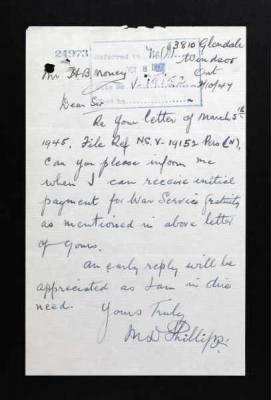 24973
Referred to
3810 Glendale
Windsor
Ont
Mr H.B. Money
V-19152
2/10/47
Dear Sir
Re your letter of March 5th
1945, File Ref NS. V-19152 Pers (N),
Can you please inform me
when I can receive initial
payment for War Service Gratuity
as mentioned in above letter
of yours.
An early reply will be
appreciated as I am in dire
need.
Yours Truly
M.D. Phillips